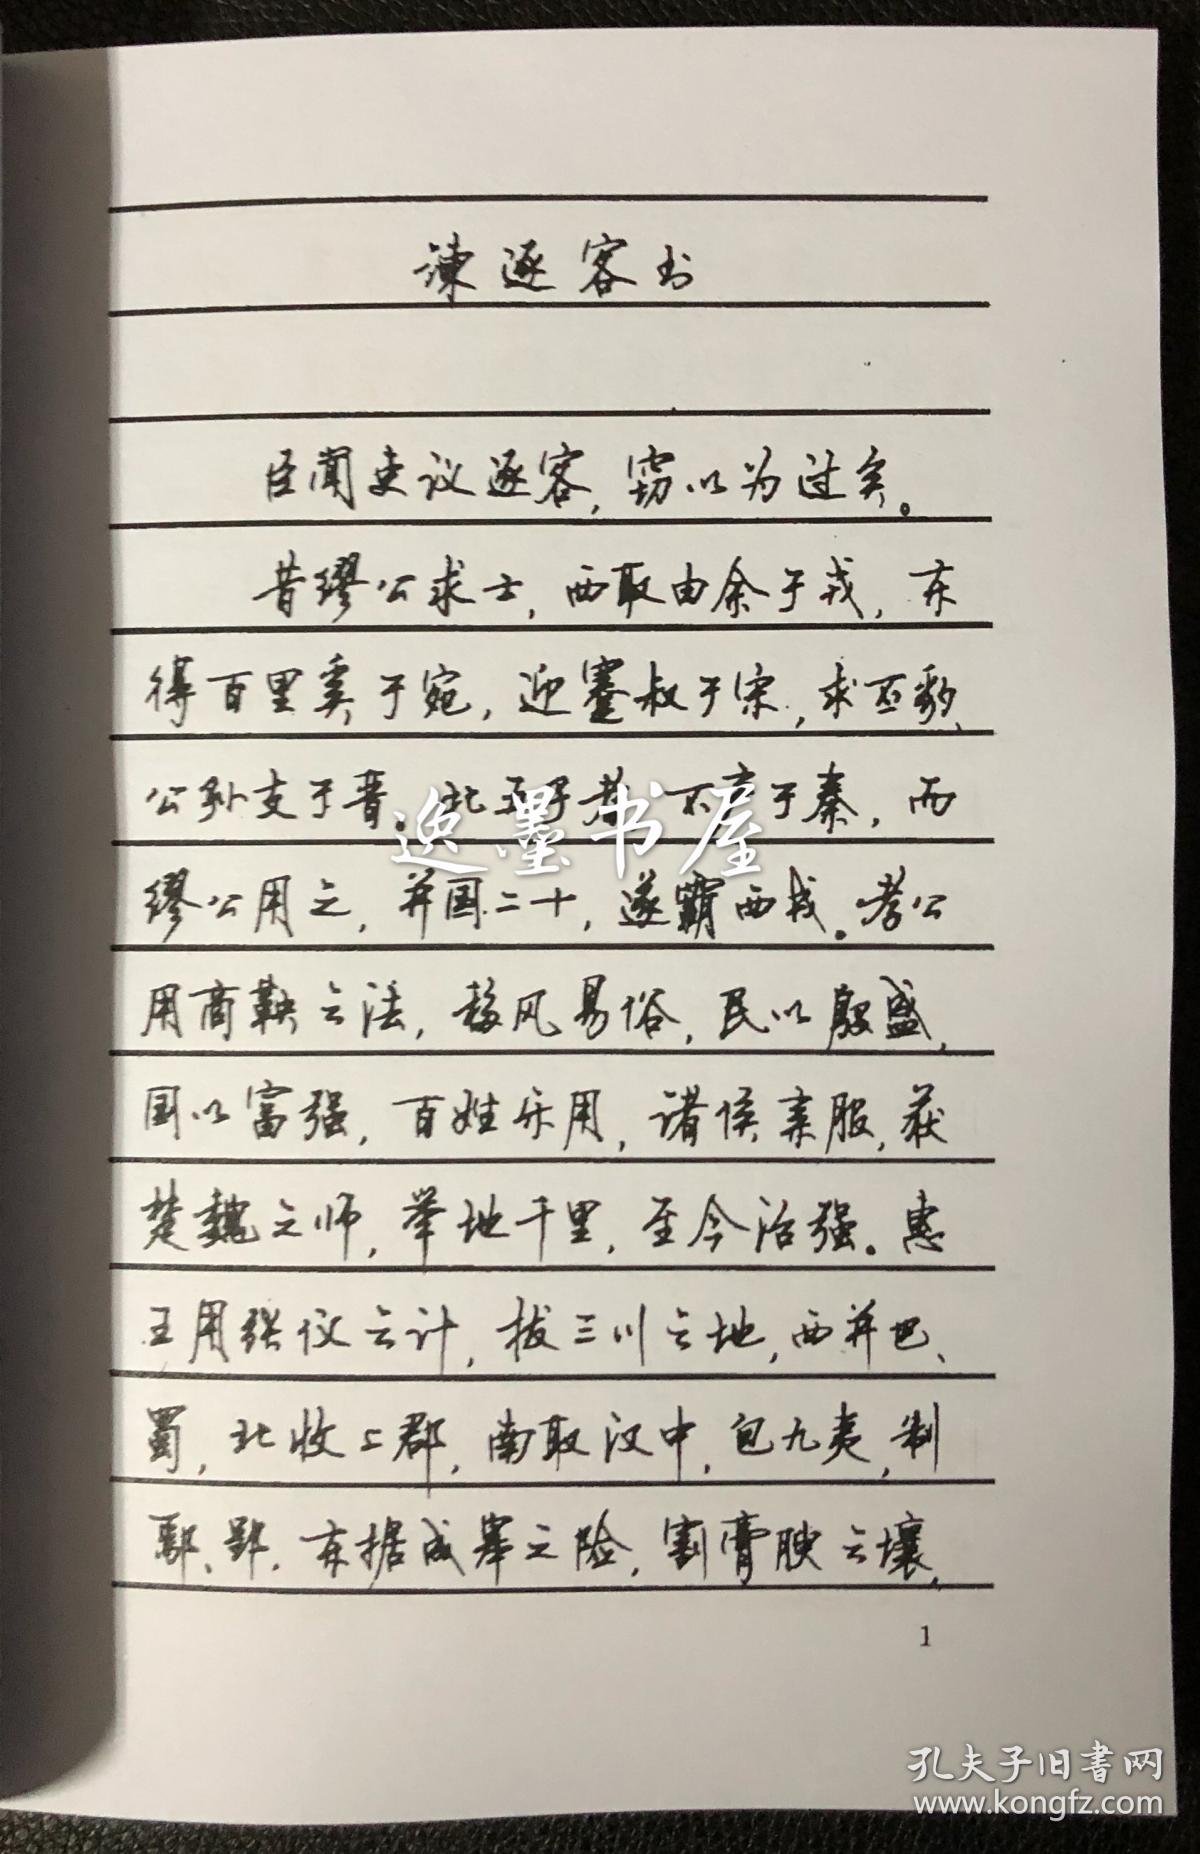 谏逐客书
臣闻吏议逐客，窃以为过矣。
昔缪公求士，西取由余于戎，东
得百里奚于宛，迎蹇叔于宋，求丕豹、
公孙支于晋。此五子者，不产于秦，而
缪公用之，并国二十，遂霸西戎。孝公
用商鞅之法，移风易俗，民以殷盛，
国以富强，百姓乐用，诸侯亲服，获
楚魏之师，举地千里，至今治强。惠
王用张仪之计，拔三川之地，西并巴、
蜀，北收上郡，南取汉中，包九夷，制
鄢、郢，东据成皋之险，割膏腴之壤，
1
逸墨书屋
孔夫子旧书网
www.kongfz.com